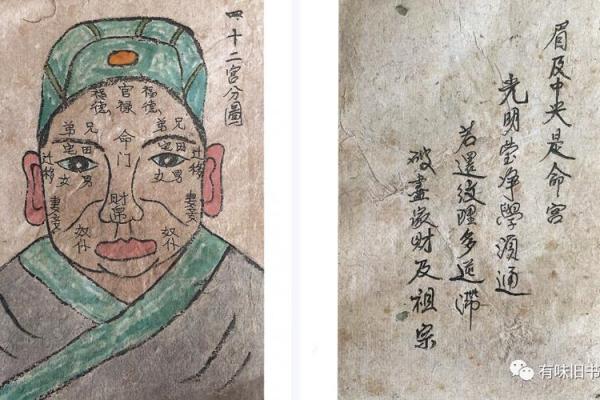 四十二宫分圖
福德
官禄
福德
兄弟
命门
兄弟
田宅
田宅
迁移
男女
男女
迁移
妻妾
财帛
妻妾
奴仆
奴仆
眉及中央是命宫
光明莹净學須通
若還纹理多迍滞
破盡家财及祖宗
有味旧书